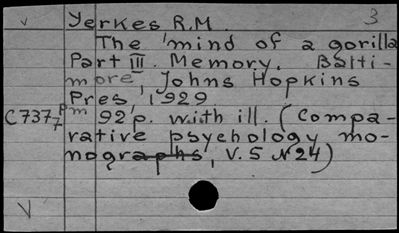 v Yerkes R.M. 3
The mind of a gorilla
Part III. Memory. Balti-
more, Johns Hopkins
Pres, 1929
C7377 pm 92 p. with ill. (Compa-
rative psychology mo-
nographs, V. 5 N 24)
V